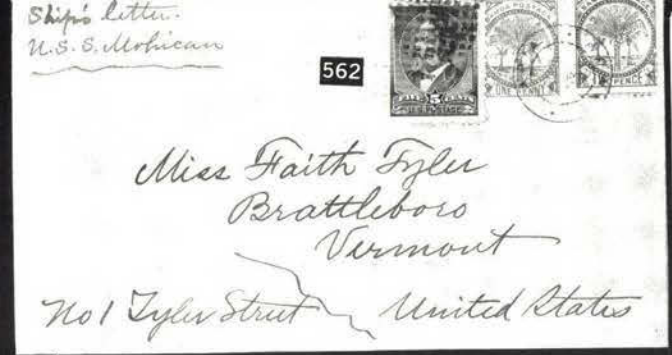 Ship's letter.
U.S.S. Mohican
562
5
U.S. POSTAGE
POSTAGE
ONE PENNY
PENCE
Miss Faith Tyler
Brattleboro
Vermont
No 1 Tyler Street
United States